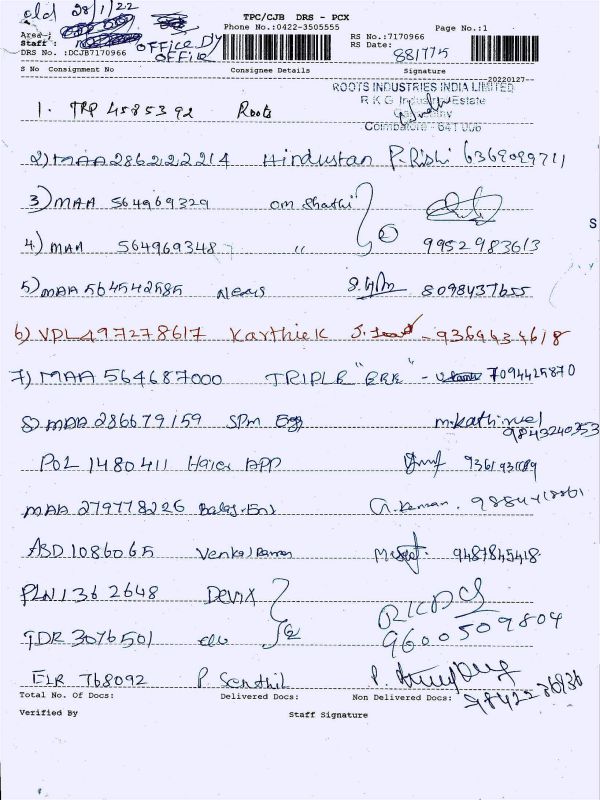 old 28/1/22
TPC/CJB DRS - PCX
Phone No.:0422-3505555
Page No.:1
Area :
Staff :
OFFICE DY
OFFICE
RS No.:7170966
RS Date:
DRS No. :DCJB7170966
881775
S No Consignment No Consignee Details Signature
20220127
ROOTS INDUSTRIES INDIA LIMITED
R K G Industrial Estate
Coimbatore - 641 006
1. TRP 4585392 Roots
2) MAA 286222214 Hindustan P. Rishi 6369099711
3) MAA 564969329 OM Shathi
4) MAA 564969348 " 2 9952983613
5) MAA 564542585 Nexus 8098437655
6) VPL 497278617 Karthick 9364434618
7) MAA 564687000 TRIPLE "EEE" - 7094425870
8) MAA 286679159 SPM Egg M. Kathirvel
9843240353
POL 1480411 Haier APP
MAA 279778226 Balaj. Ent 9884418861
ASD 1086065 Venkat Raman 9487845418
PLN 1362648 Devix
TDR 3076501 do 2 9600509804
ELR 768092 P Senthil P.
Total No. Of Docs: Delivered Docs: Non Delivered Docs:
9842236836
Verified By Staff Signature
S